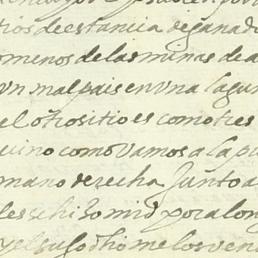 tios de estancia de ganado
omenos de las minas de a
Vn mal pais en vna lagun
el otro sitio es como tres
uino como Vamos a la pu
mano derecha Junto a
les se hizo mrd por a lon
y el suso dho me los ven